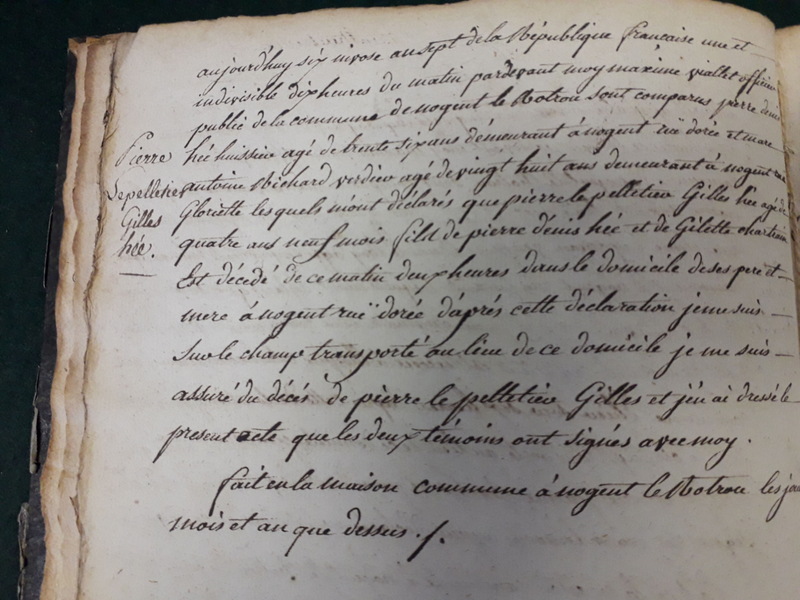 aujourd'huy six nivose an sept de la République française une et
indivisible dix heures du matin pardevant moy maxime viallet officier
publié de la commune de nogent le Rotrou sont comparus pierre denis
hée huissier agé de trente six ans démeurant à nogent ruë dorée et marc
antoine Richard verdier agé de vingt huit ans demeurant à nogent rue
Gloriette les quels m'ont déclarés que pierre le pelletier Gilles hée agé de
quatre ans neuf mois fild de pierre dénis hée et de Gilette chartrain
Est décédé de ce matin deux heures dans le domicile de ses pere et
mere à nogent ruë dorée d'aprés cette déclaration je me suis
sur le champ transporté au lieu de ce domicile je me suis
assuré du décés de pierre le pelletier Gilles et j'én ai dressé le
present acte que les deux témoins ont signés avec moy.
fait en la maison commune à nogent le Rotrou les jour
mois et an que dessus ./.
Pierre
Lepelletier
Gilles
hée.